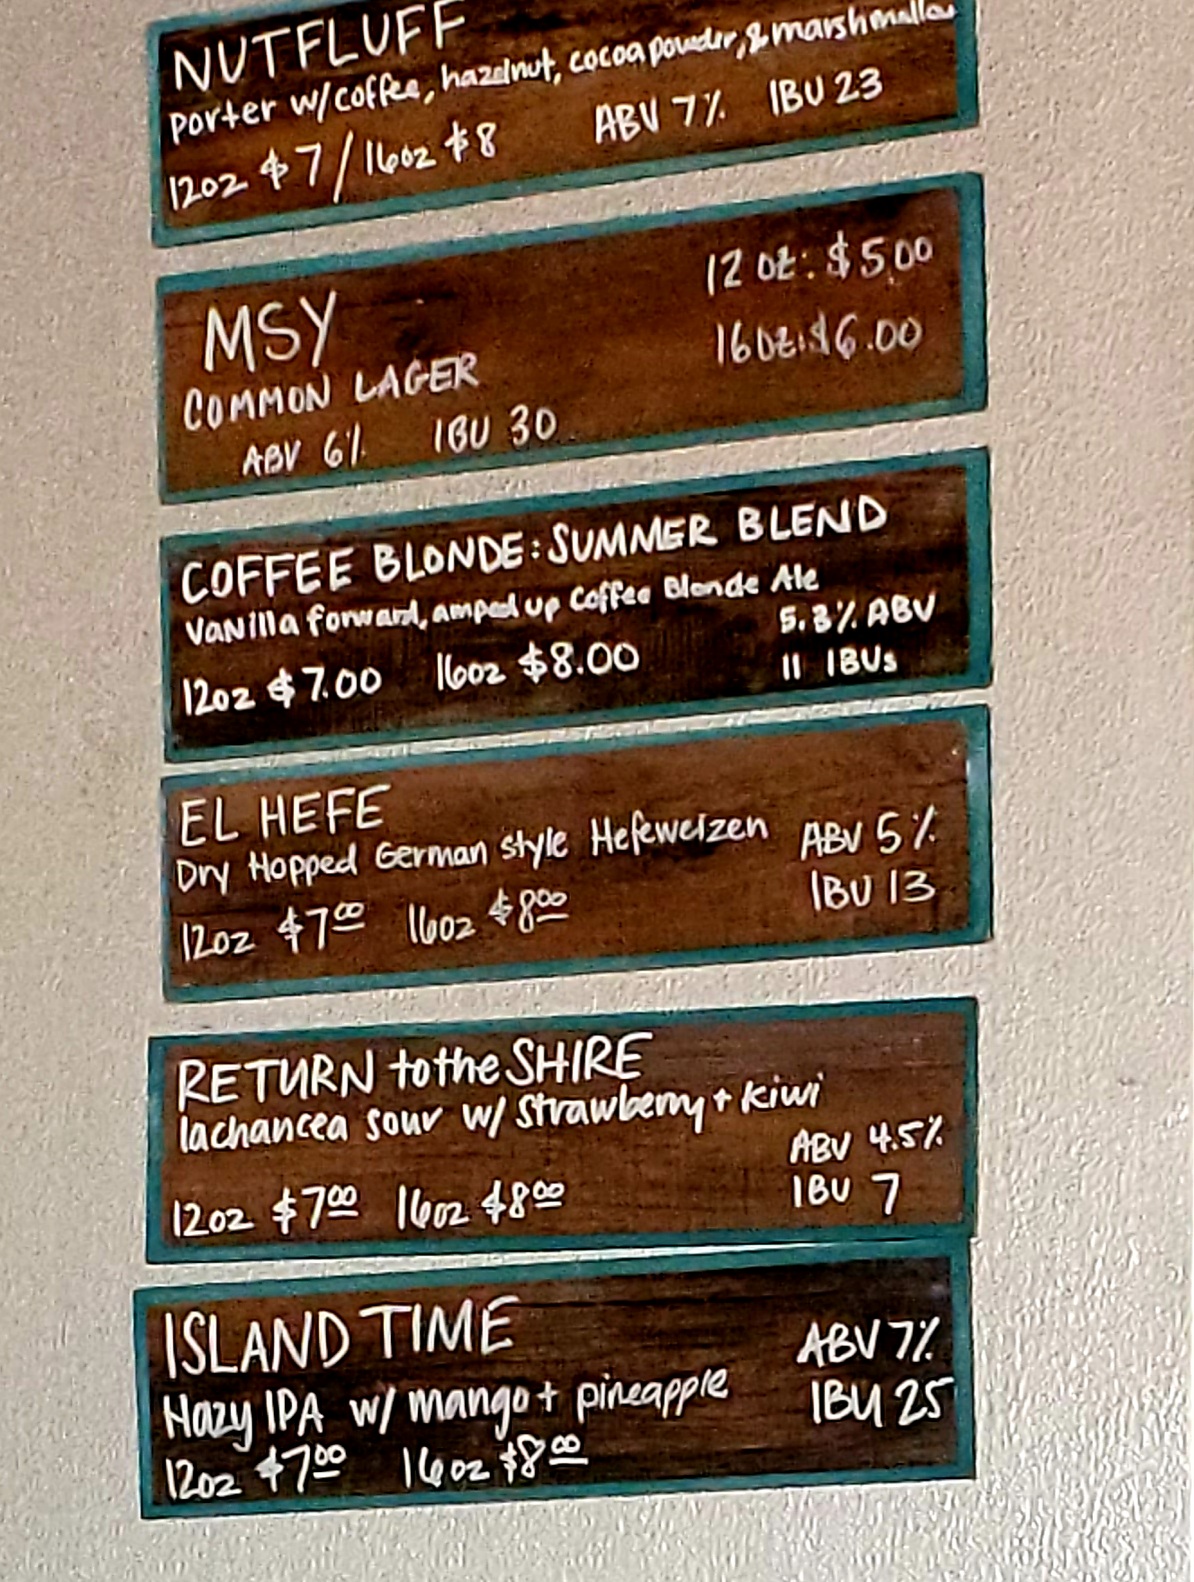 NUTFLUFF
porter w/coffee, hazelnut, cocoa powder, & marshmallow
12oz $7/16oz $8 ABV 7% IBU 23
MSY
COMMON LAGER
ABV 6% IBU 30
12 oz: $5.00
16oz: $6.00
COFFEE BLONDE: SUMMER BLEND
Vanilla forward, amped up Coffee Blonde Ale
12oz $7.00 16oz $8.00
5.3% ABV
11 IBUs
EL HEFE
Dry Hopped German style Hefeweizen
12oz $7.00 16oz $8.00
ABV 5%
IBU 13
RETURN to the SHIRE
lachancea sour w/ strawberry + kiwi
12oz $7.00 16oz $8.00
ABV 4.5%
IBU 7
ISLAND TIME
Hazy IPA w/ mango + pineapple
12oz $7.00 16oz $8.00
ABV 7%
IBU 25